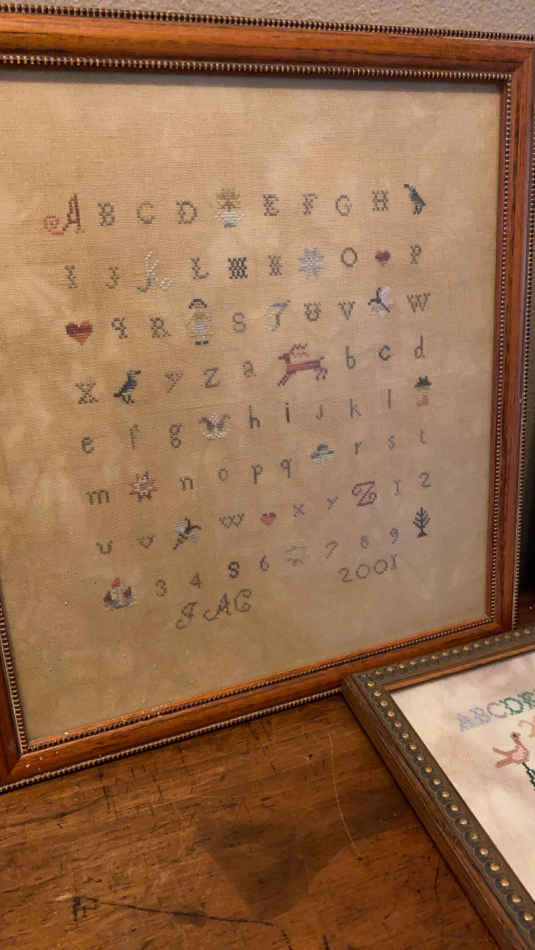 A B C D E F G H
I J K L M N O P
Q R S T U V W
X Y Z a b c d
e f g h i j k l
m n o p q r s t
u v w x y Z 1 2
3 4 5 6 7 8 9
JAC 2001
ABCDE